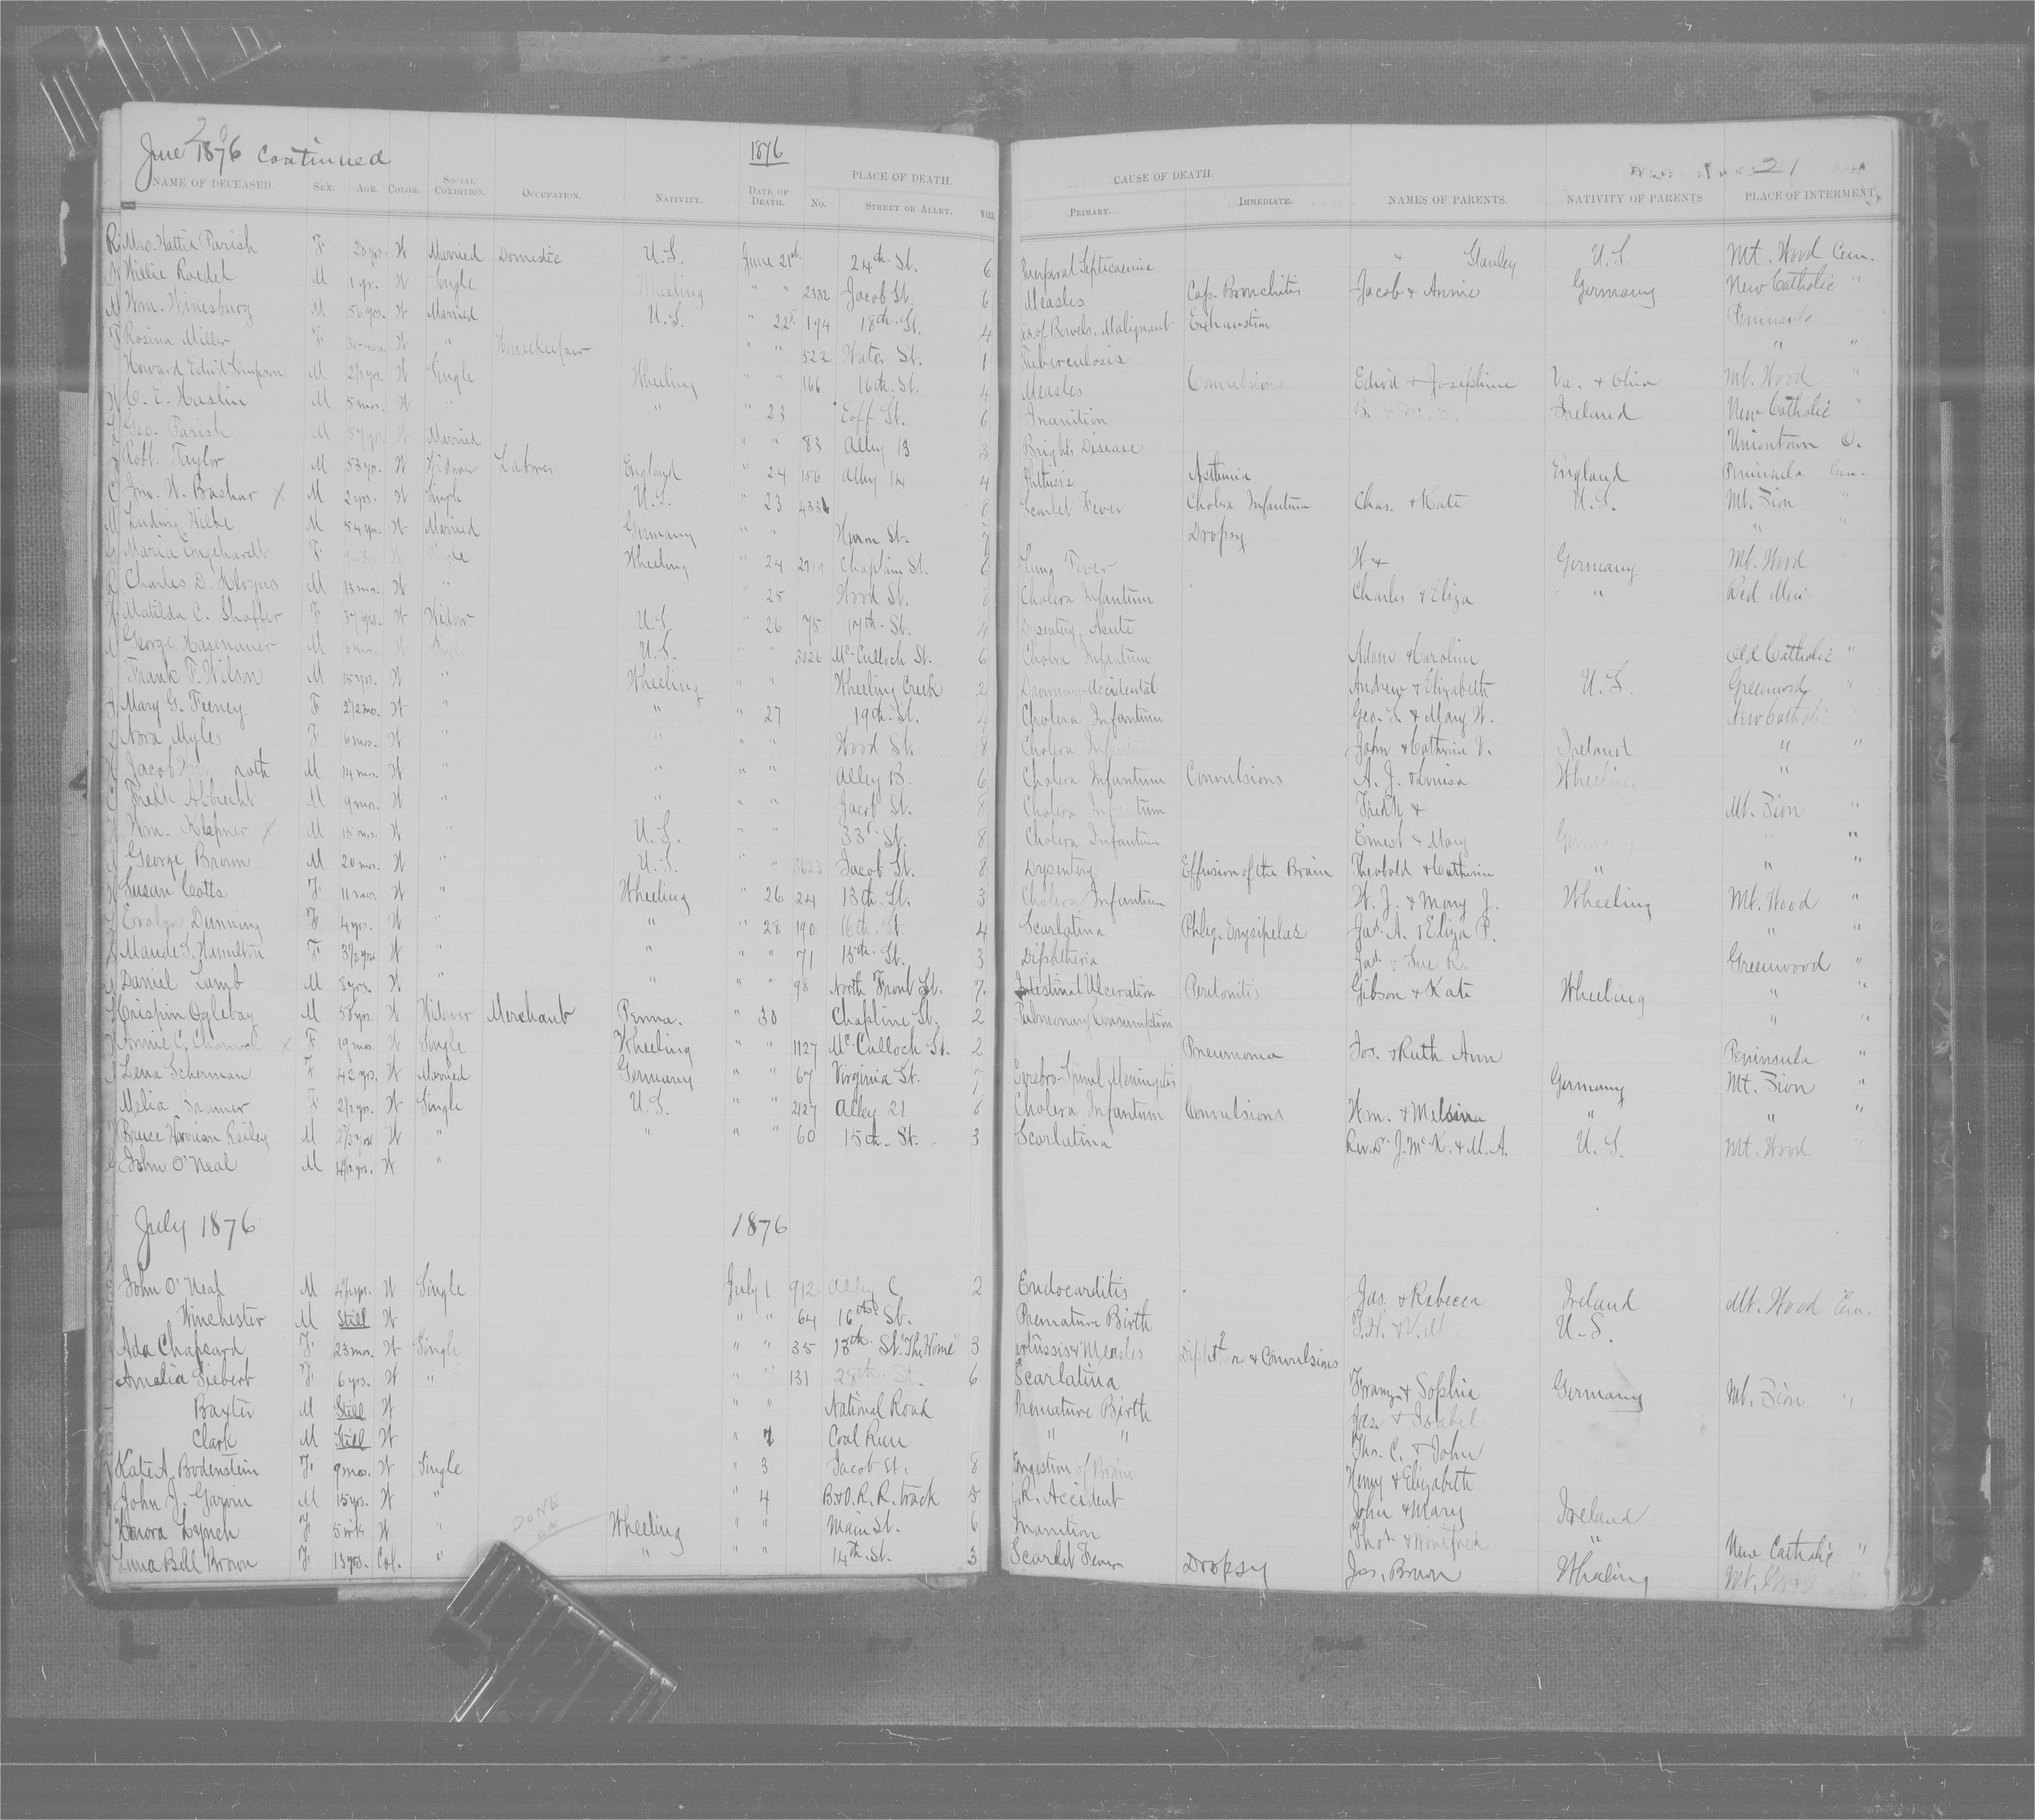 20
June 1876 Continued
1876
21
NAME OF DECEASED. SEX. AGE. COLOR. SOCIAL CONDITION. OCCUPATION. NATIVITY. DATE OF DEATH. PLACE OF DEATH. No. STREET OR ALLEY. WARD CAUSE OF DEATH. PRIMARY. IMMEDIATE. NAMES OF PARENTS. NATIVITY OF PARENTS PLACE OF INTERMENT.
Mrs. Hattie Parish F 20 yrs. W Married Domestic U.S. June 21st. 24th St. 6 Puerperal Septicaemia " Stanley U.S. Mt. Wood Cem.
Willie Roedel M 1 yr. W Single Wheeling " " 2332 Jacob St. 6 Measles Cap. Bronchitis Jacob & Annie Germany New Catholic "
Wm. Winesburg M 56 yrs. W Married U.S. " 22 194 18th St. 4 of Bowels, Malignant Exhaustion Peninsula
Rosina Miller F W " Housekeeper " " 522 Water St. 1 Tuberculosis " "
Howard Edwd Simpson M 2½ yrs. W Single Wheeling " " 166 16th St. 4 Measles Convulsions Edwd & Josephine Va. & Ohio Mt. Wood "
C. E. Haslin M 5 mos. W " " " 23 Eoff St. 6 Inanition Ireland New Catholic "
Geo. Parish M 57 yrs. W Married " " 83 Alley 13 3 Brights Disease Uniontown O.
Robt. Taylor M 53 yrs. W Widower Laborer England " 24 186 Alley 14 4 Phthisis Asthenia England Peninsula Cem.
Jno. W. Bashar x M 2 yrs. W Single U.S. " 23 4331 8 Scarlet Fever Cholera Infantum Chas. & Kate U.S. Mt. Zion "
Ludwig Wilke M 54 yrs. W Married Germany " " Huron St. 7 Dropsy " "
Maria Engehardt F W Single Wheeling " 24 2719 Chaplain St. 6 Lung Fever W & Germany Mt. Wood
Charles D. Klogus M 13 mos. W " " 25 Wood St. 8 Cholera Infantum Charles & Eliza " Red Men
Matilda C. Shaffer F 37 yrs. W Widow U.S. " 26 75 17th St. 4 Dysentery, Acute
George Hasenauer M 6 mos. W Single U.S. " " 3026 McCulloch St. 6 Cholera Infantum Adam & Caroline Old Catholic "
Frank F. Wilson M 15 yrs. W " Wheeling " " Wheeling Creek 2 Drowning-Accidental Andrew & Elizabeth U.S. Greenwood "
Mary G. Feeney F 2½ mos. W " " " 27 19th St. 4 Cholera Infantum Geo. S. & Mary W. New Catholic
Nora Myles F 6 mos. W " " " " Wood St. 8 Cholera Infantum John & Catherin V. Ireland " "
Jacob roth M 14 mos. W " " " " Alley B. 6 Cholera Infantum Convulsions A. J. & Louisa Wheeling "
Fredk Albrecht M 9 mos. W " " " " Jacob St. 8 Cholera Infantum Fredk & Mt. Zion "
Wm. Klepner x M 15 mos. W " U.S. " " 33rd St. 8 Cholera Infantum Ernest & Mary Germany " "
George Brown M 20 mos. W " U.S. " " 3623 Jacob St. 8 Dysentery Effusion of the Brain Theobold & Catherin " " "
Susan Cotts F 11 mos. W " Wheeling " 26 24 13th St. 3 Cholera Infantum W. J. & Mary J. Wheeling Mt. Wood "
Evalyn Dunning F 4 yrs. W " " " 28 190 16th St. 4 Scarlatina Phleg. Erysipelas Jas. A. & Eliza P. " "
Maude S. Hamilton F 3½ yrs. W " " " " 71 15th St. 3 Diphtheria Jas. & Sue R. Greenwood "
Daniel Lamb M 8 yrs. W " " " " 98 North Front St. 7. Intestinal Ulceration Peritonitis Gibson & Kate Wheeling " "
Crispin Oglebay M 58 yrs. W Widower Merchant Penna. " 30 Chapline St. 2 Pulmonary Consumption " "
Annie C. Charnock x F 19 mos. W Single Wheeling " " 1127 McCulloch St. 2 Pneumonia Jos. & Ruth Ann Peninsula "
Lena Scherman F 42 yrs. W Married Germany " " 67 Virginia St. 7 Cerebro-Spinal Meningitis Germany Mt. Zion "
Melia Bramer F 2½ yrs. W Single U.S. " " 2127 Alley 21 8 Cholera Infantum Convulsions Wm. & Melsina " " "
Bruce Harrian Reiley M W " " " " 60 15th St. 3 Scarlatina Rev. Dr. J. McK. & M. A. U.S. Mt. Wood "
John O'Neal M W "
July 1876 1876
John O'Neal M W Single July 1 912 Alley C 2 Endocarditis Jas. & Rebecca Ireland Mt. Wood Cem.
Winchester M Still W " " 64 16th St. Premature Birth U.S.
Ada Chapeard F 23 mos. W Single " " 35 13th St. "The Home" 3 Pertussis & Measles & Convulsions
Amelia Siebert F 6 yrs. W " " " 131 28th St. 6 Scarlatina Franz & Sophia Germany Mt. Zion "
Baxter M Still W " " National Road Premature Birth Jas. & Isabel
Clark M Still W " 2 Coal Run " " Thos. C. & John
Kate A. Bodenstein F 9 mos. W Single " 3 Jacob St. 8 Congestion of Brain Henry & Elizabeth
John J. Garvin M 15 yrs. W " " 4 B&O. R.R. track 5 R.R. Accident John & Mary Ireland
Honora Lynch F 5 wks W " Wheeling " " Main St. 6 Inanition Thos. & Winifred " New Catholic "
Lima Bell Brown F 13 yrs. Col. " " " " 14th St. 3 Scarlet Fever Dropsy Jas. Brown Wheeling Mt. "
DONE